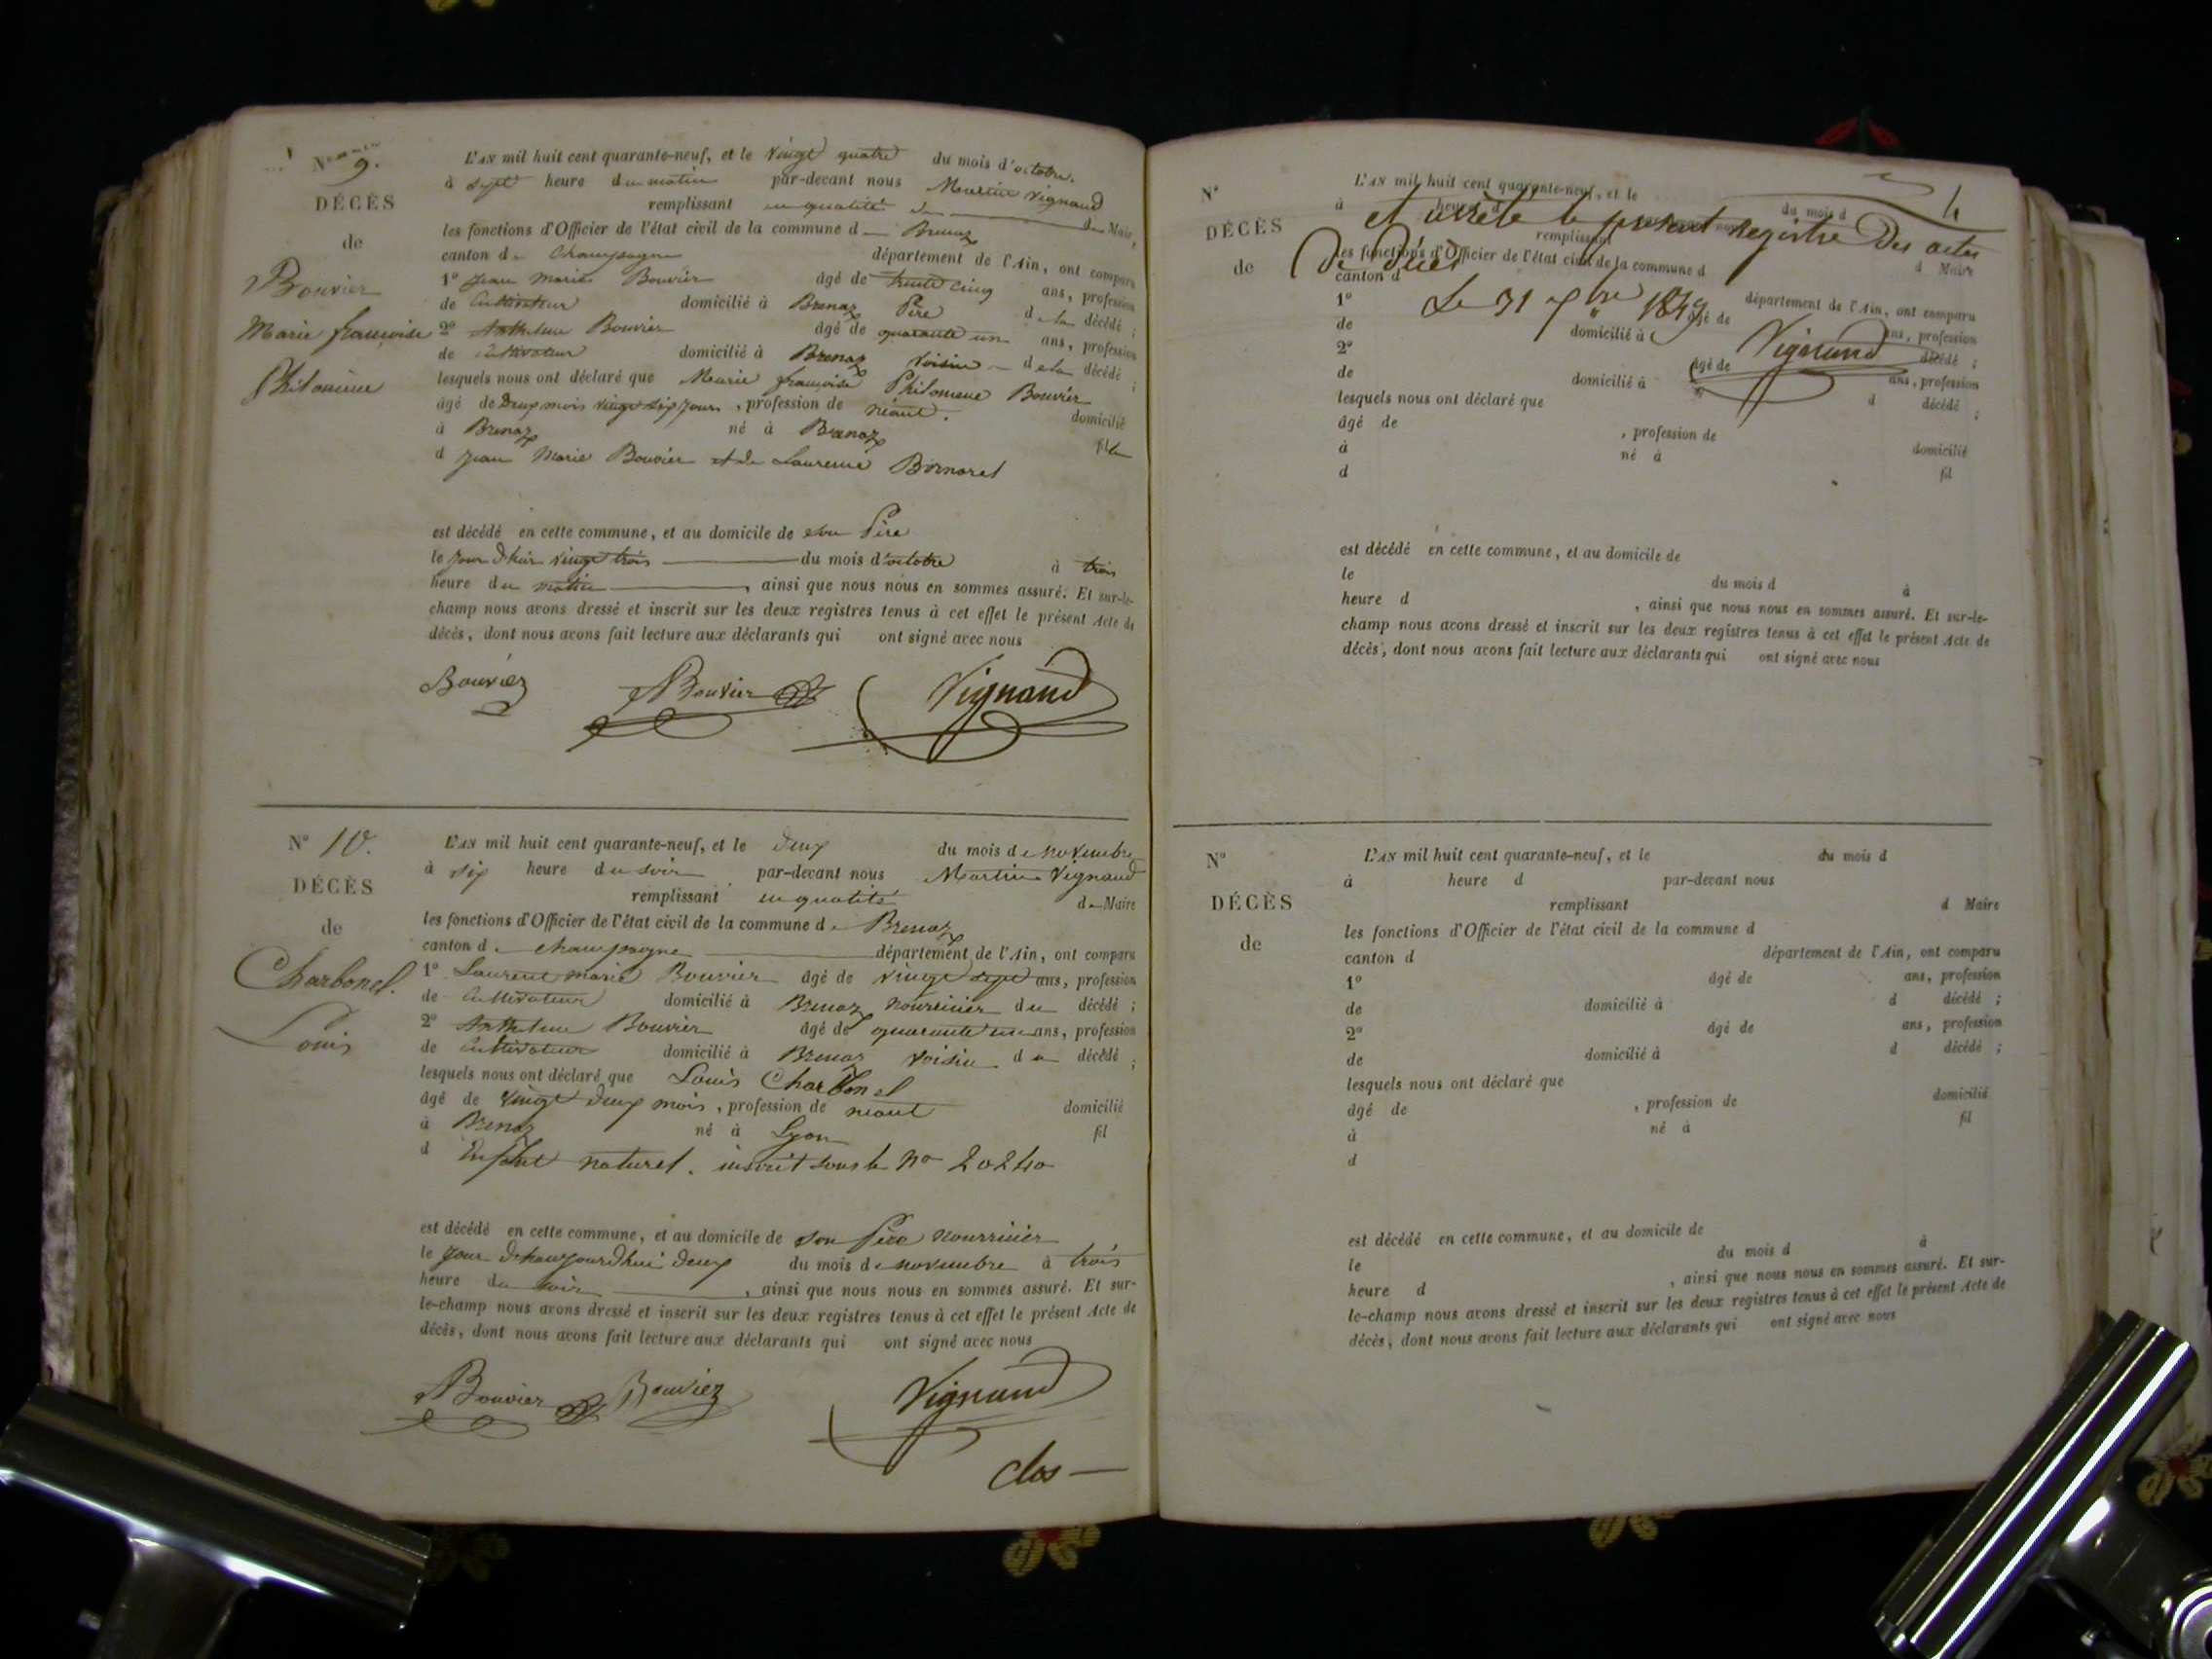 N° 9.
DÉCÈS
de
Bouvier
Marie françoise
Philomène
L'AN mil huit cent quarante-neuf, et le vingt quatre du mois d'octobre.
à sept heure du matin par-devant nous Martin Vignand
remplissant en qualité de Maire,
les fonctions d'Officier de l'état civil de la commune d Brenaz
canton de Champagne département de l'Ain, ont comparu
1° Jean Marie Bouvier âgé de trente cinq ans, profession
de Cultivateur domicilié à Brenaz Père de la décédé ;
2° Anthelme Bouvier âgé de quarante un ans, profession
de Cultivateur domicilié à Brenaz Voisin de la décédé ;
lesquels nous ont déclaré que Marie françoise Philomène Bouvier
âgé de Deux mois vingt six jours, profession de néant. domicilié
à Brenaz né à Brenaz fille
d Jean Marie Bouvier et de Laurence Bornarel
est décédé en cette commune, et au domicile de son Père
le jour d'hier vingt trois du mois d'octobre à trois
heure du matin, ainsi que nous nous en sommes assuré. Et sur-le-
champ nous avons dressé et inscrit sur les deux registres tenus à cet effet le présent Acte de
décès, dont nous avons fait lecture aux déclarants qui ont signé avec nous
Bouvier Bouvier Vignand
N° 10.
DÉCÈS
de
Charbonel.
Louis
L'AN mil huit cent quarante-neuf, et le deux du mois de novembre
à six heure du soir par-devant nous Martin Vignand
remplissant en qualité de Maire
les fonctions d'Officier de l'état civil de la commune de Brenaz
canton de champagne département de l'Ain, ont comparu
1° Laurent marie Bouvier âgé de vingt sept ans, profession
de Cultivateur domicilié à Brenaz nourricier du décédé ;
2° Anthelme Bouvier âgé de quarante un ans, profession
de Cultivateur domicilié à Brenaz voisin du décédé ;
lesquels nous ont déclaré que Louis Charbonel
âgé de vingt deux mois, profession de néant domicilié
à Brenaz né à Lyon fil
d Enfant naturel. inscrit sous le No 20240
est décédé en cette commune, et au domicile de son Père nourricier
le jour d'haujourd'hui deux du mois de novembre à trois
heure du soir, ainsi que nous nous en sommes assuré. Et sur-
le-champ nous avons dressé et inscrit sur les deux registres tenus à cet effet le présent Acte de
décès, dont nous avons fait lecture aux déclarants qui ont signé avec nous
Bouvier Bouvier Vignand
Clos
N°
DÉCÈS
de
L'AN mil huit cent quarante-neuf, et le du mois d
à heure d
et arrêté le présent Registre Des actes
remplissant d Maire
De Décès
les fonctions d'Officier de l'état civil de la commune d
canton d département de l'Ain, ont comparu
Le 31 Xbre 1849
1° âgé de ans, profession
de domicilié à décédé ;
Vignand
2° âgé de ans, profession
de domicilié à d décédé ;
lesquels nous ont déclaré que
âgé de , profession de domicilié
à né à fil
d
est décédé en cette commune, et au domicile de
le du mois d à
heure d , ainsi que nous nous en sommes assuré. Et sur-le-
champ nous avons dressé et inscrit sur les deux registres tenus à cet effet le présent Acte de
décès, dont nous avons fait lecture aux déclarants qui ont signé avec nous
N°
DÉCÈS
de
L'AN mil huit cent quarante-neuf, et le du mois d
à heure d par-devant nous
remplissant d Maire
les fonctions d'Officier de l'état civil de la commune d
canton d département de l'Ain, ont comparu
1° âgé de ans, profession
de domicilié à d décédé ;
2° âgé de ans, profession
de domicilié à d décédé ;
lesquels nous ont déclaré que
âgé de , profession de domicilié
à né à fil
d
est décédé en cette commune, et au domicile de
le du mois d à
heure d , ainsi que nous nous en sommes assuré. Et sur-
le-champ nous avons dressé et inscrit sur les deux registres tenus à cet effet le présent Acte de
décès, dont nous avons fait lecture aux déclarants qui ont signé avec nous